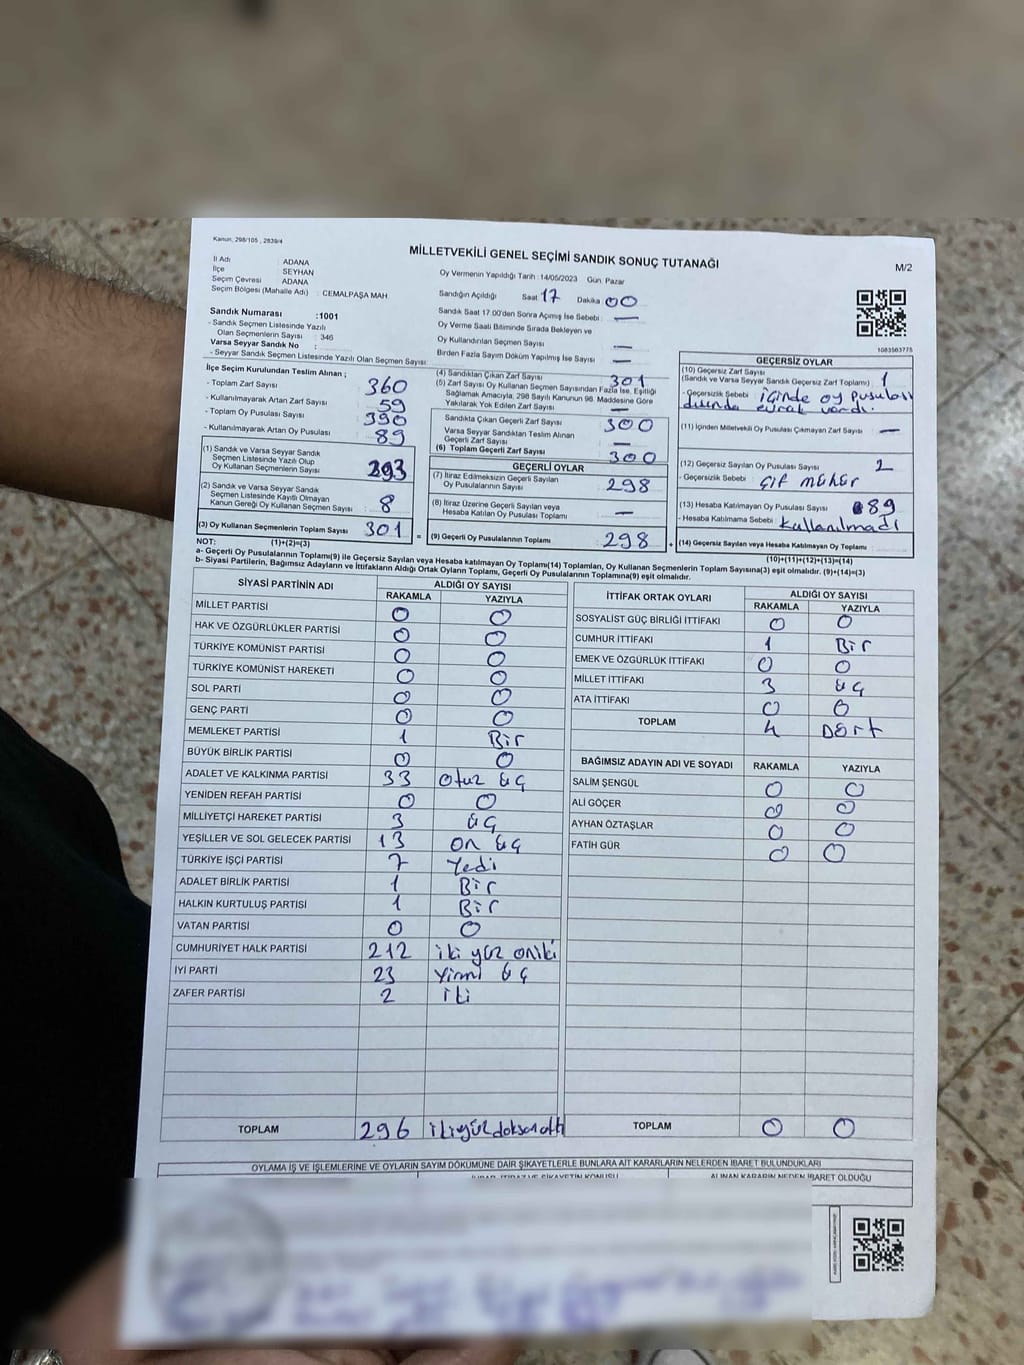 Kanun, 298/105 , 2839/4
MİLLETVEKİLİ GENEL SEÇİMİ SANDIK SONUÇ TUTANAĞI
M/2
İl Adı : ADANA
İlçe : SEYHAN
Seçim Çevresi : ADANA
Seçim Bölgesi (Mahalle Adı) : CEMALPAŞA MAH.
Oy Vermenin Yapıldığı Tarih : 14/05/2023 Gün: Pazar
Sandığın Açıldığı Saat 17 Dakika 00
Sandık Saat 17.00'den Sonra Açımış İse Sebebi : —
Oy Verme Saati Bitiminde Sırada Bekleyen ve
Oy Kullandırılan Seçmen Sayısı —
Birden Fazla Sayım Döküm Yapılmış İse Sayısı —
Sandık Numarası :1001
- Sandık Seçmen Listesinde Yazılı
Olan Seçmenlerin Sayısı : 346
Varsa Seyyar Sandık No :
- Seyyar Sandık Seçmen Listesinde Yazılı Olan Seçmen Sayısı :
1083563775
İlçe Seçim Kurulundan Teslim Alınan ;
- Toplam Zarf Sayısı 360
- Kullanılmayarak Artan Zarf Sayısı 59
- Toplam Oy Pusulası Sayısı 390
- Kullanılmayarak Artan Oy Pusulası 89
(1) Sandık ve Varsa Seyyar Sandık
Seçmen Listesinde Yazılı Olup
Oy Kullanan Seçmenlerin Sayısı 293
(2) Sandık ve Varsa Seyyar Sandık
Seçmen Listesinde Kayıtlı Olmayan
Kanun Gereği Oy Kullanan Seçmen Sayısı 8
(3) Oy Kullanan Seçmenlerin Toplam Sayısı 301
(4) Sandıktan Çıkan Zarf Sayısı 301
(5) Zarf Sayısı Oy Kullanan Seçmen Sayısından Fazla İse, Eşitliği
Sağlamak Amacıyla, 298 Sayılı Kanunun 98. Maddesine Göre
Yakılarak Yok Edilen Zarf Sayısı —
Sandıkta Çıkan Geçerli Zarf Sayısı 300
Varsa Seyyar Sandıktan Teslim Alınan
Geçerli Zarf Sayısı —
(6) Toplam Geçerli Zarf Sayısı 300
GEÇERLİ OYLAR
(7) İtiraz Edilmeksizin Geçerli Sayılan
Oy Pusulalarının Sayısı 298
(8) İtiraz Üzerine Geçerli Sayılan veya
Hesaba Katılan Oy Pusulası Toplamı —
(9) Geçerli Oy Pusulalarının Toplamı 298
GEÇERSİZ OYLAR
(10) Geçersiz Zarf Sayısı
(Sandık ve Varsa Seyyar Sandık Geçersiz Zarf Toplamı) 1
- Geçersizlik Sebebi içinde oy pusulası
dışında evrak vardı.
(11) İçinden Milletvekili Oy Pusulası Çıkmayan Zarf Sayısı —
(12) Geçersiz Sayılan Oy Pusulası Sayısı 2
- Geçersizlik Sebebi Çift mühür
(13) Hesaba Katılmayan Oy Pusulası Sayısı 89
- Hesaba Katılmama Sebebi : kullanılmadı
(14) Geçersiz Sayılan veya Hesaba Katılmayan Oy Toplamı :
NOT: (1)+(2)=(3)
(10)+(11)+(12)+(13)=(14)
a- Geçerli Oy Pusulalarının Toplamı(9) ile Geçersiz Sayılan veya Hesaba katılmayan Oy Toplamı(14) Toplamları, Oy Kullanan Seçmenlerin Toplam Sayısına(3) eşit olmalıdır. (9)+(14)=(3)
b- Siyasi Partilerin, Bağımsız Adayların ve İttifakların Aldığı Ortak Oyların Toplamı, Geçerli Oy Pusulalarının Toplamına(9) eşit olmalıdır.
SİYASİ PARTİNİN ADI ALDIĞI OY SAYISI
RAKAMLA YAZIYLA
MİLLET PARTİSİ 0 0
HAK VE ÖZGÜRLÜKLER PARTİSİ 0 0
TÜRKİYE KOMÜNİST PARTİSİ 0 0
TÜRKİYE KOMÜNİST HAREKETİ 0 0
SOL PARTİ 0 0
GENÇ PARTİ 0 0
MEMLEKET PARTİSİ 1 Bir
BÜYÜK BİRLİK PARTİSİ 0 0
ADALET VE KALKINMA PARTİSİ 33 otuz üç
YENİDEN REFAH PARTİSİ 0 0
MİLLİYETÇİ HAREKET PARTİSİ 3 üç
YEŞİLLER VE SOL GELECEK PARTİSİ 13 on üç
TÜRKİYE İŞÇİ PARTİSİ 7 Yedi
ADALET BİRLİK PARTİSİ 1 Bir
HALKIN KURTULUŞ PARTİSİ 1 Bir
VATAN PARTİSİ 0 0
CUMHURİYET HALK PARTİSİ 212 iki yüz oniki
İYİ PARTİ 23 Yirmi üç
ZAFER PARTİSİ 2 iki
TOPLAM 296 ikiyüzdoksanaltı
İTTİFAK ORTAK OYLARI ALDIĞI OY SAYISI
RAKAMLA YAZIYLA
SOSYALİST GÜÇ BİRLİĞİ İTTİFAKI 0 0
CUMHUR İTTİFAKI 1 Bir
EMEK VE ÖZGÜRLÜK İTTİFAKI 0 0
MİLLET İTTİFAKI 3 üç
ATA İTTİFAKI 0 0
TOPLAM 4 Dört
BAĞIMSIZ ADAYIN ADI VE SOYADI RAKAMLA YAZIYLA
SALİM ŞENGÜL 0 0
ALİ GÖÇER 0 0
AYHAN ÖZTAŞLAR 0 0
FATİH GÜR 0 0
TOPLAM 0 0
OYLAMA İŞ VE İŞLEMLERİNE VE OYLARIN SAYIM DÖKÜMÜNE DAİR ŞİKAYETLERLE BUNLARA AİT KARARLARIN NELERDEN İBARET BULUNDUKLARI
ALINAN KARARIN NEDEN İBARET OLDUĞU